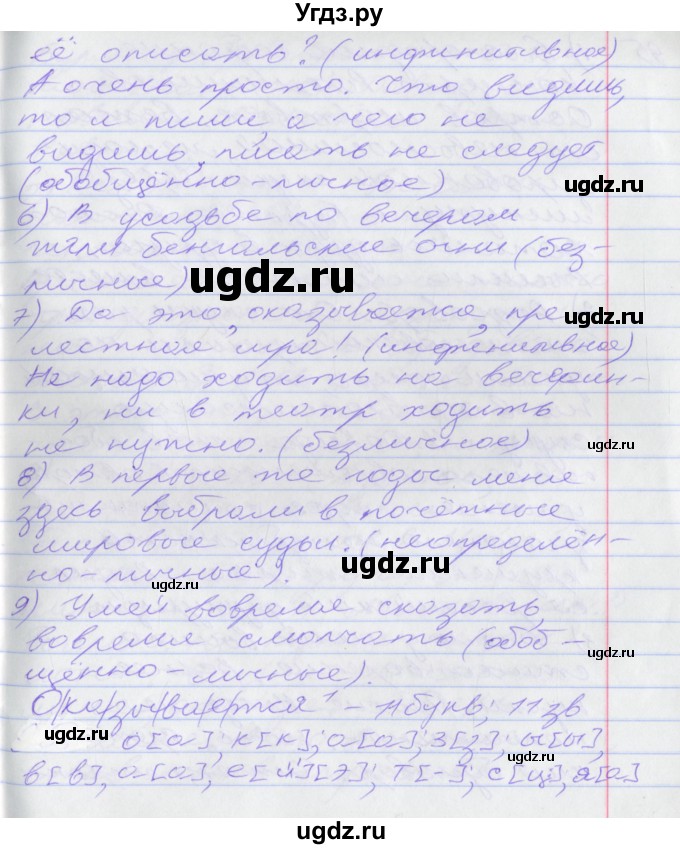 Угдз.ру
её описать? (инфинитивное)
А очень просто. Что видишь,
то и пиши, а чего не
видишь, писать не следует
(обобщённо-личное)
6) В усадьбе по вечерам
жгли бенгальские огни (без-
личные)
ugdz.ru
7) Да это, оказывается, пре-
лестная игра! (инфинитивное)
Не надо ходить на вечерин-
ки, ни в театр ходить
не нужно. (безличное)
ugdz.ru
8) В первые же годы меня
здесь выбрали в почётные
мировые судьи. (неопределён-
но-личные).
ugdz.ru
ugdz.ru
ugdz.ru
9) Умей вовремя сказать,
вовремя смолчать (обоб-
щённо-личные).
ugdz.ru
О/ка/зы/ва/е/тся – 11 букв, 11 зв
о[а], к[к], а[а], з[з], ы[ы],
ugdz.ru
ugdz.ru
в[в], а[а], е[й'][э], т[-], с[ц], я[а]
ugdz.ru